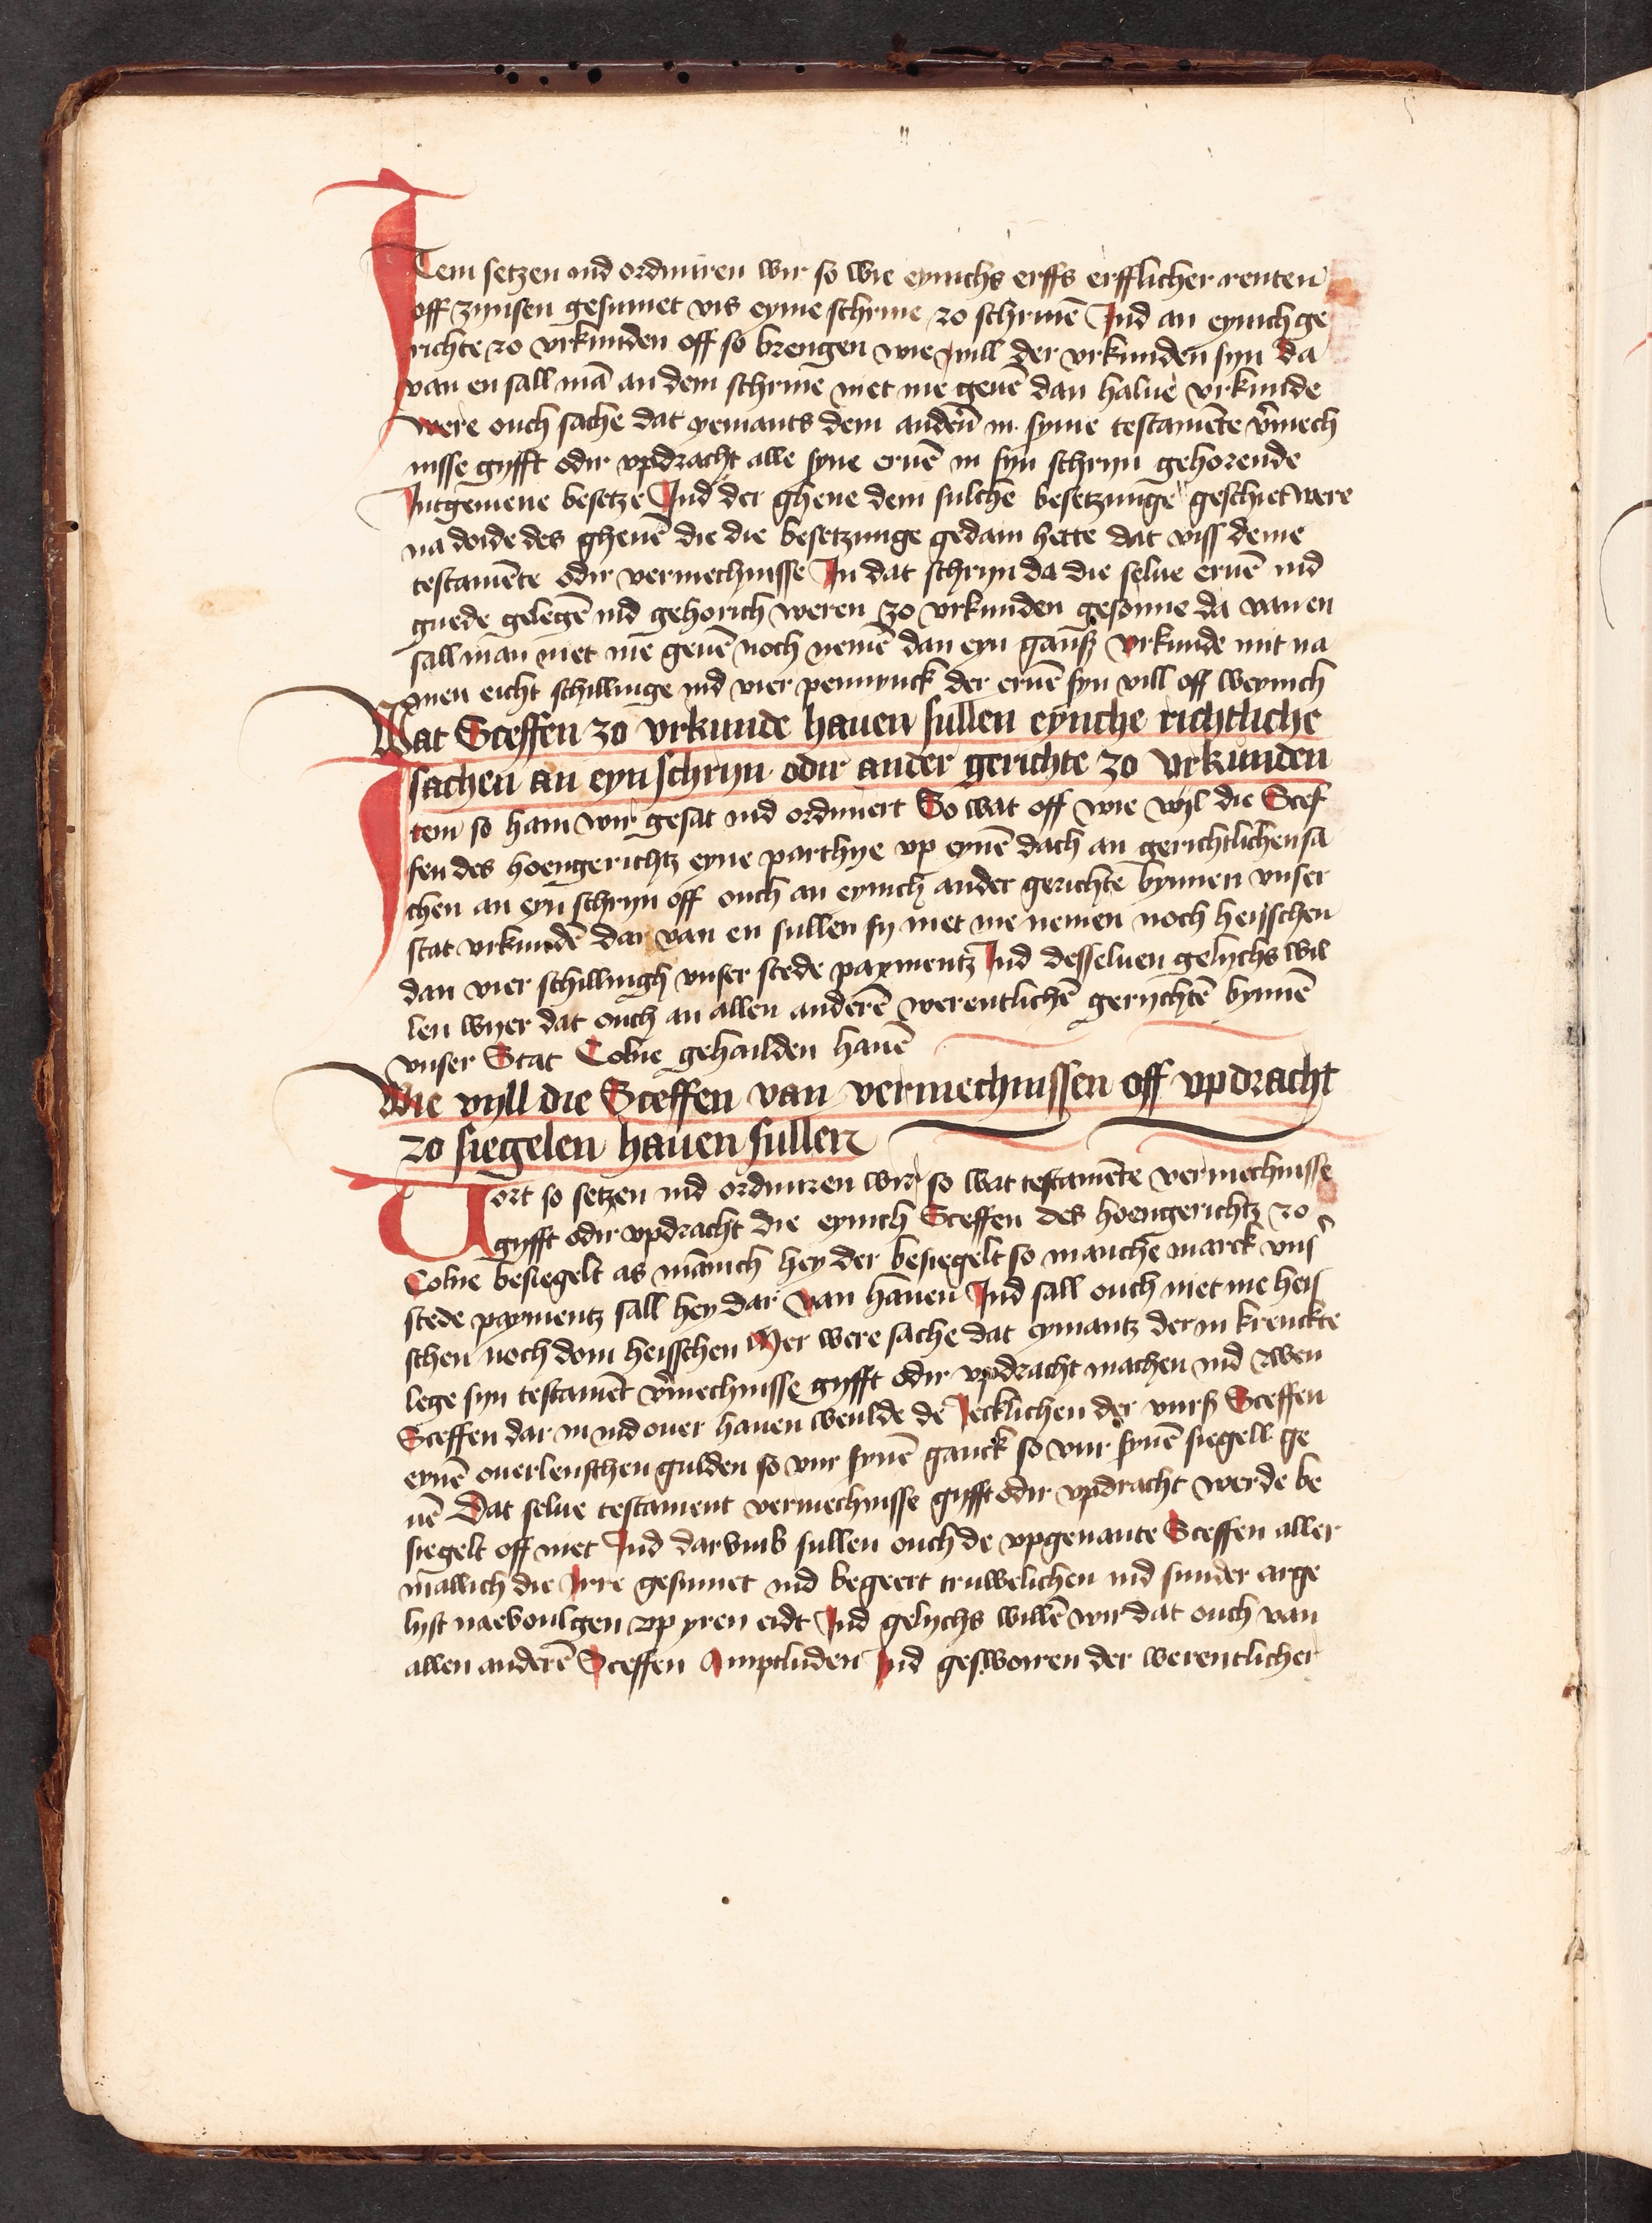 Item setzen ind ordiniren wir so wie eynichs erffs erfflicher renten
off zynsen gesinnet vis eyme schrine zo schrinē Ind an eynich ge
richte zo vrkunden off so brengen wie vill der vrkunden syn da
van en sall mā an dem schrine niet me geuē dan halue vrkunde
were ouch sache dat yemants dem andern̄ in syme testamēte v̄mech
nisse gyfft odir vpdracht alle syne eruē in syn schryn gehorende
Intgemeine besetze Ind der ghene dem sulche besetzunge geschiet were
na doide des ghenē die die besetzunge gedain hette dat viss deme
testamēte odir vermechnisse In dat schryn da die selue eruē ind
guede gelegē ind gehorich weren zo vrkunden gesonne da van en
sall man niet me geuē noch nemē dan eyn gantz vrkunde mit na
men eicht schillinge ind vier pennynck der eruē syn vill off weynich
Wat Sceffen zo vrkunde hauen sullen eynche richtliche
sachen an eyn schryn odir ander gerichte zo vrkunden
Item so hain wir gesat ind ordiniert So wat off wie vyl die Scef
fen des hoengerichtz eyne parthye vp eynē dach an gerichtlichen sa
chen an eyn schryn off ouch an eynich ander gerichte bynnen vnser
stat vrkundē dar van en sullen sy niet me nemen noch heisschen
dan vier schillingh vnser stede paymentz Ind desseluen gelychs wil
len wyer dat ouch an allen anderē werentlichē gerychtē bynnē
vnser Stat Colne gehailden hauē
Wie vyll die Sceffen van vermechnissen off vpdracht
zo siegelen hauen sullen
Vort so setzen ind ordiniren wir so wat testamēte vermechnisse
gyfft odir vpdracht die eynich Sceffen des hoengerichtz zo
Colne besiegelt as mānich hey der besiegelt so manche marck vns̄
stede paymentz sall hey dar van hauen Ind sall ouch niet me heis
schen noch doin heisschen Mer were sache dat eymantz der in krenckte
lege syn testamēt v̄mechnisse gyfft odir vpdracht machen ind zwen
Sceffen dar in ind ouer hauen weulde de Iecklichen der vnrß Sceffen
eynē ouerlenschen gulden so vur synē ganck so vur synē siegell ge
uē Dat selue testament vermechnisse gyfft odir vpdracht werde be
siegelt off niet Ind darvmb sullen ouch de vpgenante Sceffen aller
mallich die Irre gesinnet ind begeert truwelichen ind sunder arge
lyst naevoulgen vp yren eidt Ind gelychs willē wir dat ouch van
allen anderē Sceffen Amptluden Ind gesworen der werentlicher